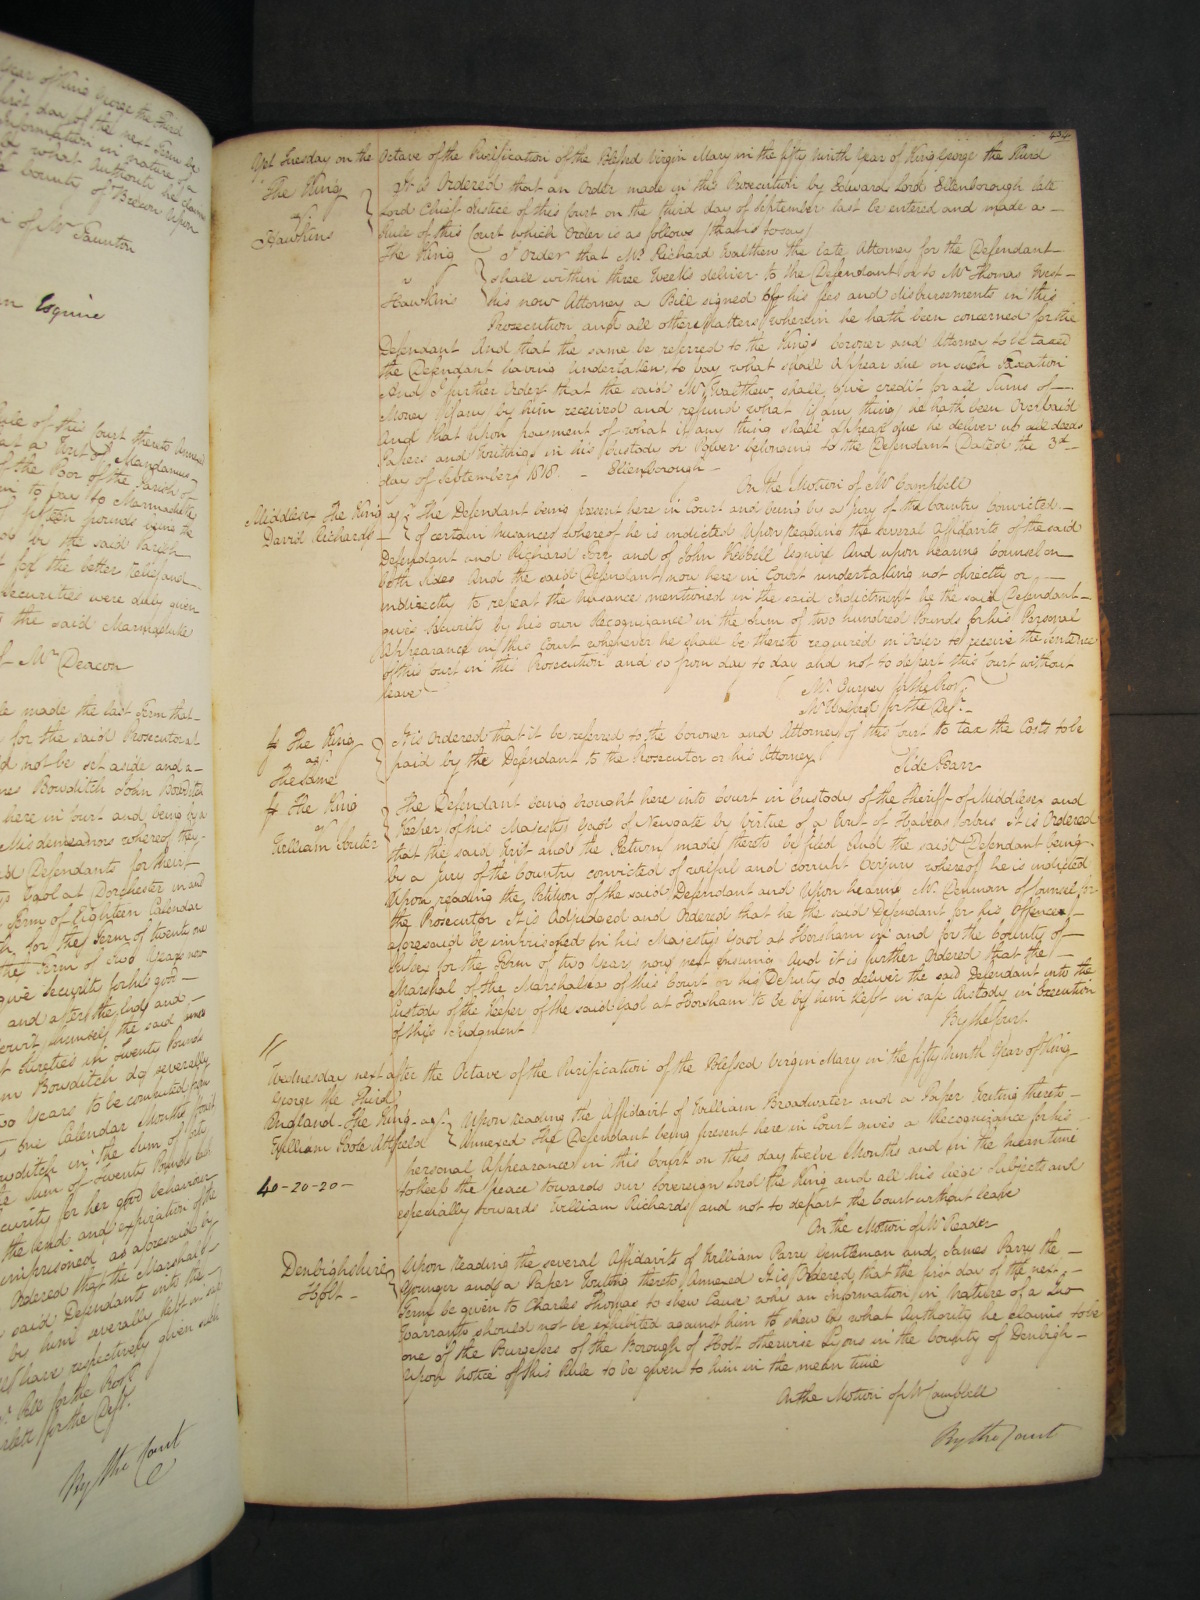 year of King George the Third
first day of the next Term be
Information in nature of a
by what Authority he claims
County of Brecon Upon
of Mr Taunton
Esquire
Rule of this Court thereto Annexed
a Writ of Mandamus
of the Poor of the Parish of
to pay to Marmaduke
fifteen pounds being the
by the said Parish
for the better Relief and
Securities were duly given
the said Marmaduke
Mr Deacon
made the last Term that
for the said Prosecutor at
not be set aside and a
Bowditch John Bowditch
here in Court and being by a
Misdemeanors whereof they
Defendants for their
Gaol at Dorchester in and
Term of Eighteen Calendar
for the Term of twenty one
the Term of two Years now
give security for his good
and after the End and
himself the said James
Sureties in Twenty Pounds
Bowditch do severally
Years to be computed from
one Calendar Months from
Bowditch in the sum of
Sum of twenty Pounds
security for her good behaviour
the End and expiration of the
imprisoned as aforesaid by
Ordered that the Marshal
said Defendants into the
by him severally kept in safe
have respectively given such
for the Pros
for the Deft.
By the Court
434
Yet Tuesday on the Octave of the Purification of the Blessed Virgin Mary in the fifty ninth Year of King George the Third
The King
agt
Hawkins
It is Ordered that an Order made in this Prosecution by Edward Lord Ellenborough late
Lord Chief Justice of this Court on the third day of September last be entered and made a
Rule of this Court which Order is as follows (that is to say)
The King
v
Hawkins
I Order that Mr Richard Walthew the late Attorney for the Defendant
shall within three Weeks deliver to the Defendant or to Mr Thomas West
his now Attorney a Bill signed of his fees and disbursements in this
Prosecution and all other Matters wherein he hath been concerned for the
Defendant And that the same be referred to the King's Coroner and Attorney to be taxed
the Defendant having Undertaken to pay what shall Appear due on such Taxation
And I further Order that the said Mr Walthew shall give credit for all Sums of
Money if any by him received and refund what if any thing he hath been Overpaid
And that upon payment of what if any thing shall appear due he deliver up all deeds
Papers and Writings in his Custody or Power belonging to the Defendant Dated the 3d
day of September 1818 Ellenborough
On the Motion of Mr Campbell
Middlesex The King agt
David Richards
The Defendant being present here in Court and being by a Jury of the Country Convicted
of certain nuisances whereof he is indicted Upon reading the several Affidavits of the said
Defendant and Richard and of John Hebbell Esquire And upon hearing Counsel on
both sides And the said Defendant now here in Court undertaking not directly or
indirectly to repeat the nuisance mentioned in the said Indictment he the said Defendant
gives Security by his own Recognizance in the Sum of two hundred Pounds for his Personal
Appearance in this Court whenever he shall be thereto required in Order to receive the Sentence
of this Court in this Prosecution and so from day to day and not to depart this Court without
leave
Mr. Gurney for the Pros.
Mr Walford for the Deft.
The King
agt
The Same
It is Ordered that it be referred to the Coroner and Attorney of this Court to tax the Costs to be
paid by the Defendant to the Prosecutor or his Attorney
Side Barr
The King
agt
William Soutter
The Defendant being brought here into Court in Custody of the Sheriff of Middlesex and
Keeper of his Majestys Gaol of Newgate by Virtue of a Writ of Habeas Corpus It is Ordered
that the said Writ and the Return made thereto be filed And the said Defendant being
by a Jury of the Country convicted of wilful and corrupt Perjury whereof he is indicted
Upon reading the Petition of the said Defendant and Upon hearing Mr. Denman of Counsel for
the Prosecutor It is Adjudged and Ordered that he the said Defendant for his Offences
aforesaid be imprisoned in his Majesty's Gaol at Horsham in and for the County of
Sussex for the Term of two Years now next ensuing And it is further Ordered that the
Marshal of the Marshalsea of this Court or his Deputy do deliver the said Defendant into the
Custody of the Keeper of the said Gaol at Horsham to be by him kept in safe Custody in Execution
of this Judgment
By the Court
Wednesday next after the Octave of the Purification of the Blessed Virgin Mary in the fifty ninth Year of King
George the Third
England The King agt
William Poole Attfield
Upon reading the Affidavit of William Broadwater and a Paper Writing thereto
Annexed The Defendant being present here in Court gives a Recognizance for his
personal Appearance in this Court on this day twelve Months and in the mean time
to keep the peace towards our Sovereign Lord the King and all his liege Subjects and
especially towards William Richards and not to depart the Court without leave
40-20-20-
On the Motion of Mr Reader
Denbighshire
Holt
Upon Reading the several Affidavits of William Parry Gentleman and James Parry the
Younger and a Paper Writing thereto Annexed It is Ordered that the first day of the next
Term be given to Charles Thomas to shew Cause why an information in Nature of a Quo
Warranto should not be exhibited against him to shew by what Authority he claims to be
one of the Burgesses of the Borough of Holt otherwise Lyons in the County of Denbigh
Upon Notice of this Rule to be given to him in the mean time
On the Motion of Mr Campbell
By the Court